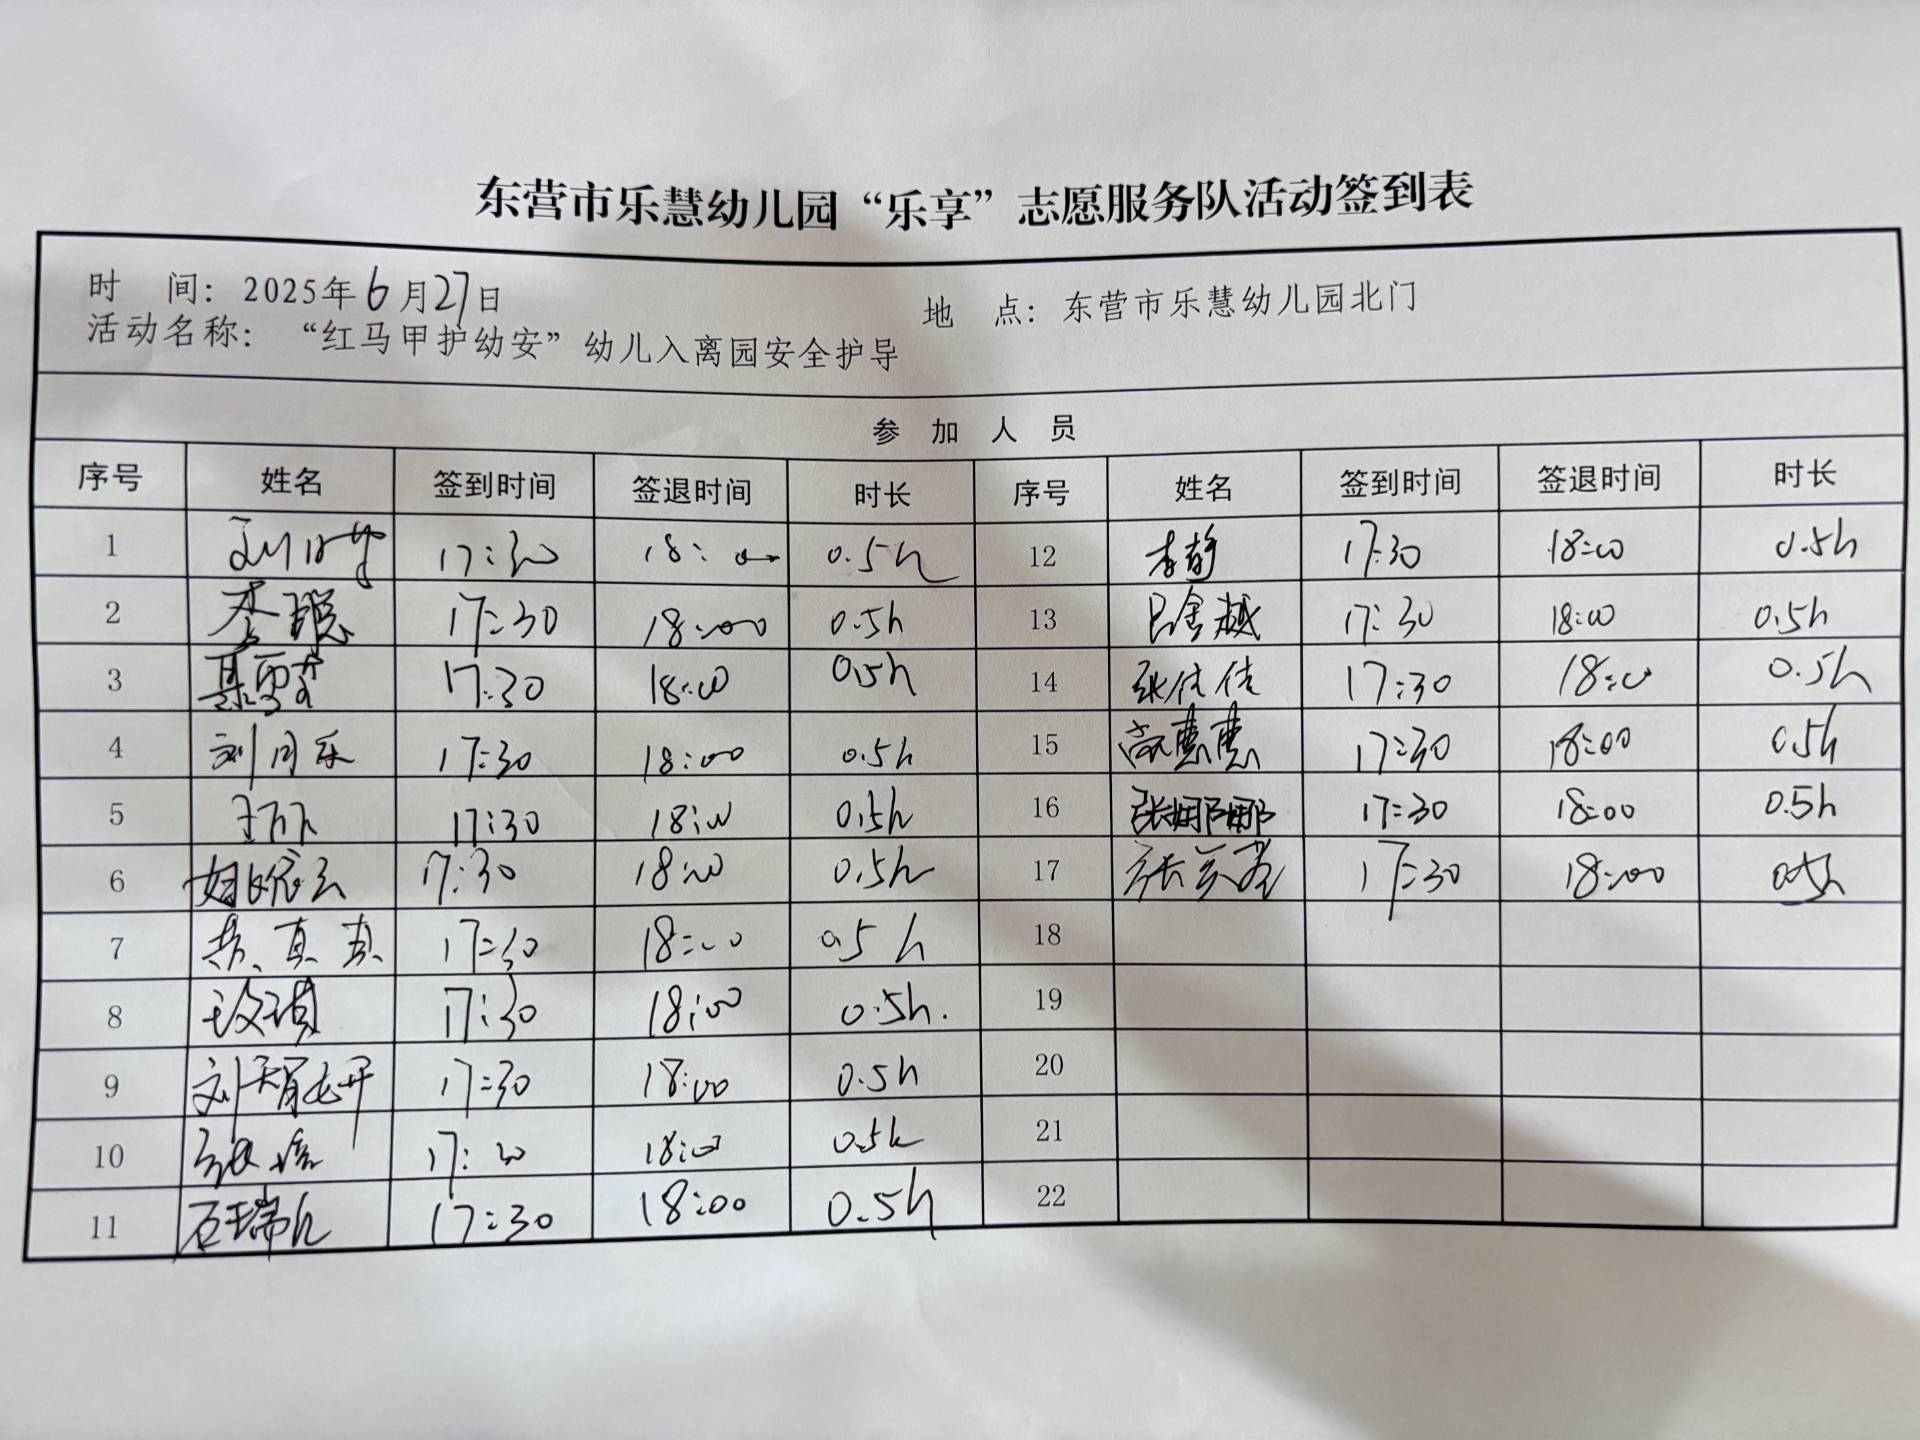 东营市乐慧幼儿园“乐享”志愿服务队活动签到表
时 间：2025年6月27日
地 点：东营市乐慧幼儿园北门
活动名称：“红马甲护幼安”幼儿入离园安全护导
参 加 人 员
序号 姓名 签到时间 签退时间 时长 序号 姓名 签到时间 签退时间 时长
1 17:30 18:00 0.5h 12 李静 17:30 18:00 0.5h
2 李聪 17:30 18:00 0.5h 13 吕金越 17:30 18:00 0.5h
3 17:30 18:00 0.5h 14 张佳佳 17:30 18:00 0.5h
4 刘月乐 17:30 18:00 0.5h 15 尚惠惠 17:30 18:00 0.5h
5 王丽 17:30 18:00 0.5h 16 张娜娜 17:30 18:00 0.5h
6 17:30 18:00 0.5h 17 17:30 18:00 0.5h
7 真真 17:30 18:00 0.5h 18
8 17:30 18:00 0.5h. 19
9 刘智妍 17:30 18:00 0.5h 20
10 17:30 18:00 0.5h 21
11 石瑞 17:30 18:00 0.5h 22